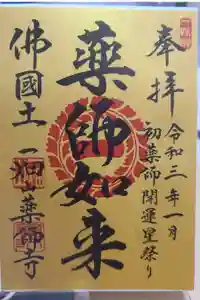 奉拝
令和三年一月
初薬師開運星祭り
薬師如来
佛國土
一畑薬師寺